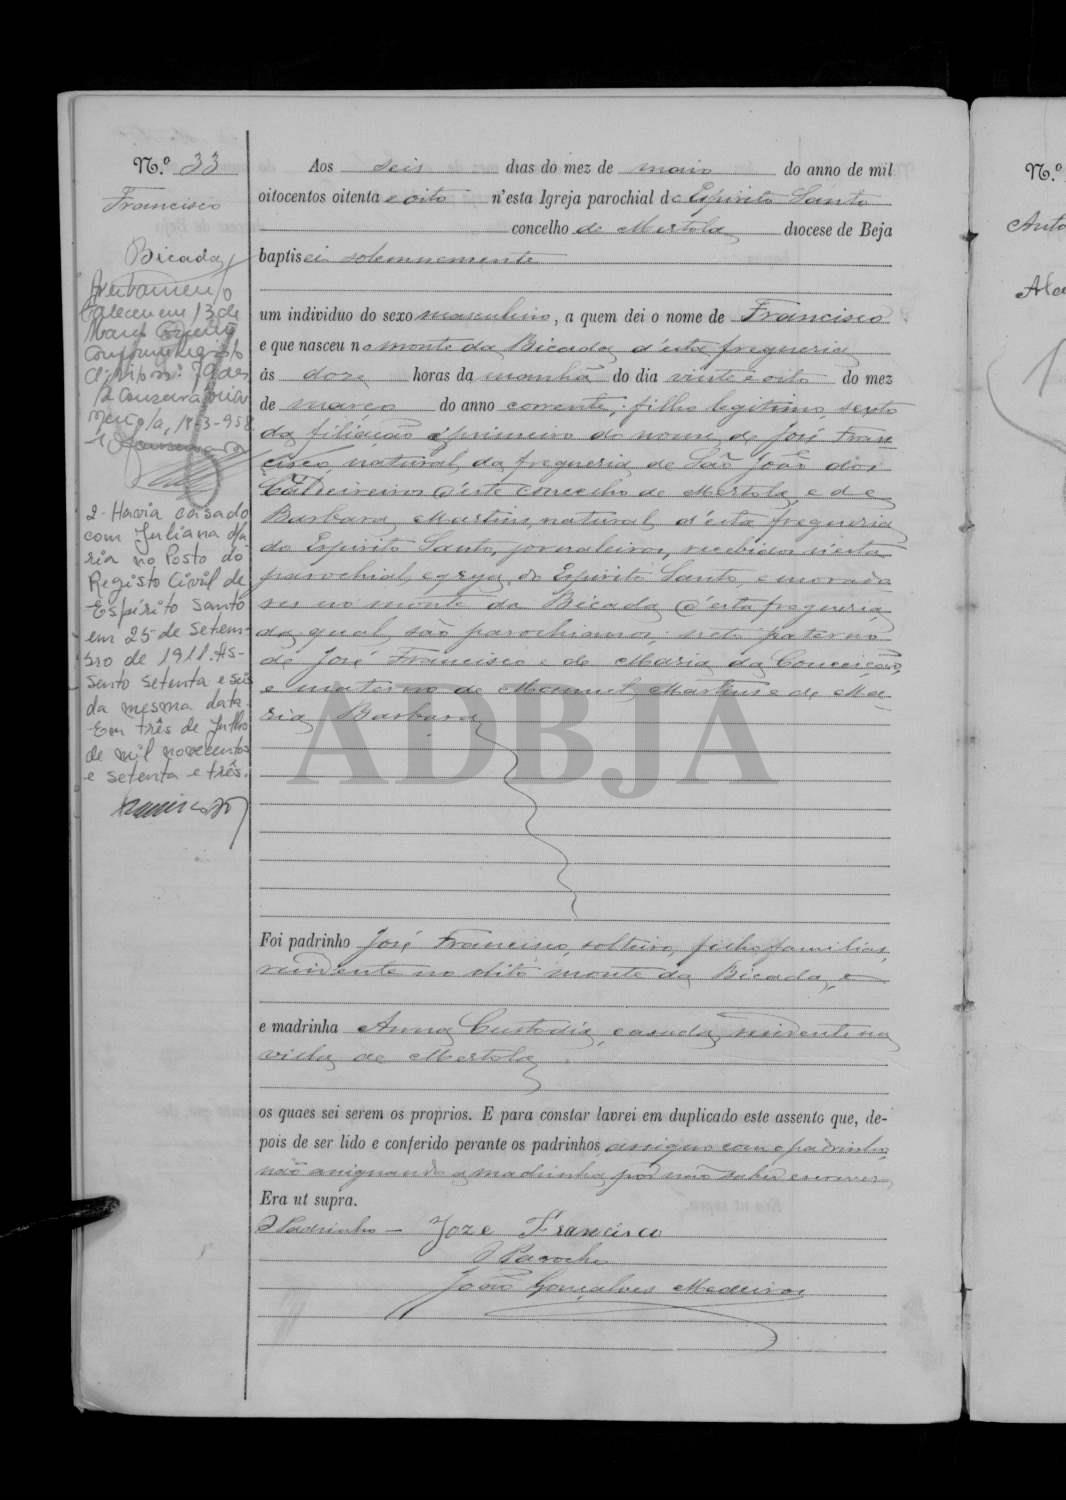 N.º 33
Francisco
Bicada
Averbamento
Faleceu em 13 de
Março corrente
conforme registo
Mertola, 18-3-958
2 - Havia casado
com Juliana Ma
ria no Posto do
Registo Civil de
Espírito Santo
em 25 de Setem-
bro de 1911. As-
sento setenta e seis
da mesma data.
Em três de Julho
de mil novecentos
e setenta e três.
Aos seis dias do mez de maio do anno de mil
oitocentos oitenta e oito n'esta Igreja parochial do Espirito Santo
concelho de Mertola diocese de Beja
baptisei solemnemente
um individuo do sexo masculino, a quem dei o nome de Francisco
e que nasceu no monte da Bicada d'esta freguesia
ás doze horas da manhã do dia vinte e oito do mez
de março do anno corrente, filho legitimo, sexto
da filiação e primeiro do nome de José Fran
cisco, natural da freguesia de São João dos
Caldeireiros d'este concelho de Mertola, e de
Barbara Martins, natural d'esta freguesia
do Espirito Santo, jornaleiros, recebidos n'esta
parochial egreja do Espirito Santo, e morado
res no monte da Bicada d'esta freguesia,
da qual são parochianos; neto paterno
de José Francisco e de Maria da Conceição,
e materno de Manuel Martins e de Ma
ria Barbara
Foi padrinho José Francisco, solteiro, filho familias,
residente no dito monte da Bicada, e
e madrinha Anna Custodia, casada, residente na
villa de Mertola.
os quaes sei serem os proprios. E para constar lavrei em duplicado este assento que, de-
pois de ser lido e conferido perante os padrinhos, assigno com o padrinho,
não assignando a madrinha por não saber escrever.
Era ut supra.
O Padrinho - Joze Francisco
O Parocho
João Gonçalves Medeiros
N.º
Anto
ADBJA